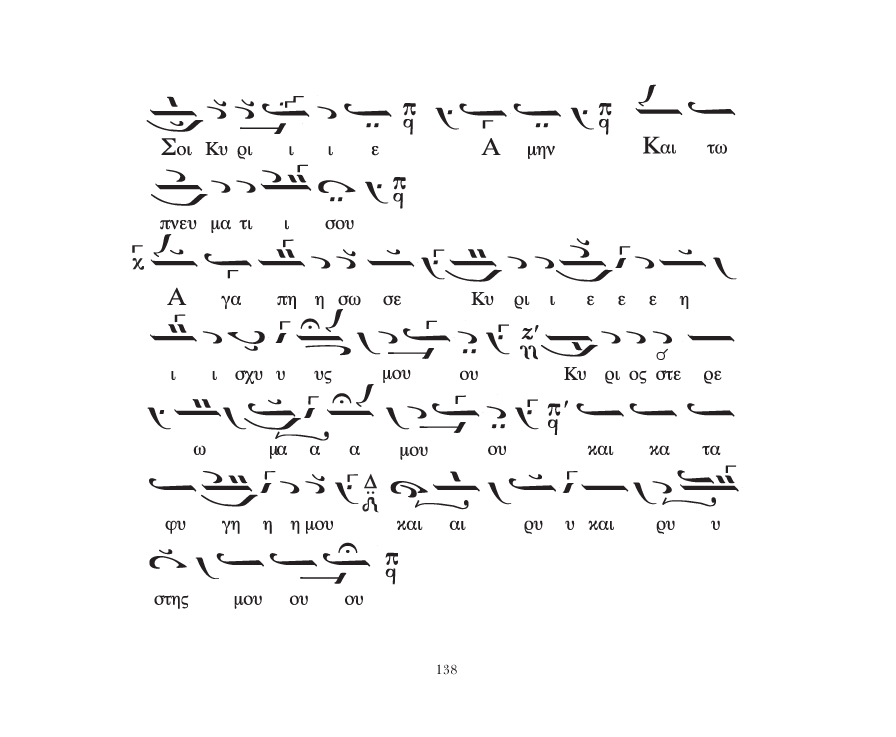 Σοι Κυ ρι ι ι ε Α μην Και τω
πνευ μα τι ι σου
Α γα πη η σω σε Κυ ρι ι ε ε ε η
ι ι σχυ υ υς μου ου Κυ ρι ος στε ρε
ω μα α α μου ου και κα τα
φυ γη η η μου και αι ρυ υ και ρυ υ
στης μου ου ου
138